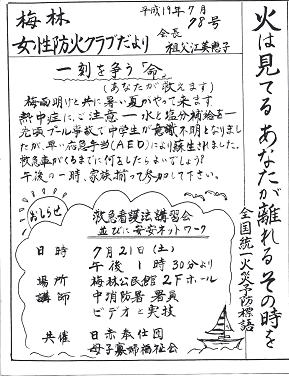 梅林
女性防火クラブだより
平成19年7月
98号
会長
祖父江美恵子
火は見てる あなたが離れる その時を
全国統一火災予防標語
一刻を争う「命」
(あなたが救えます)
梅雨明けと共に暑い夏がやって来ます
熱中症にご注意 ー 水と塩分補給を ー
先頃プール学校で中学生が意識不明となりまし
たが、早い応急手当(AED)により蘇生されました。
救急車がくるまでに何をしたらよいでしょう?
午後の一時、家族揃って参加して下さい。
おしらせ
救急看護法講習会
並びに安安ネットワーク
日時 7月21日(土)
午後1時30分より
場所 梅林公民館2Fホール
講師 中消防署 署員
ビデオと実技
共催 日赤奉仕団
母子寡婦福祉会